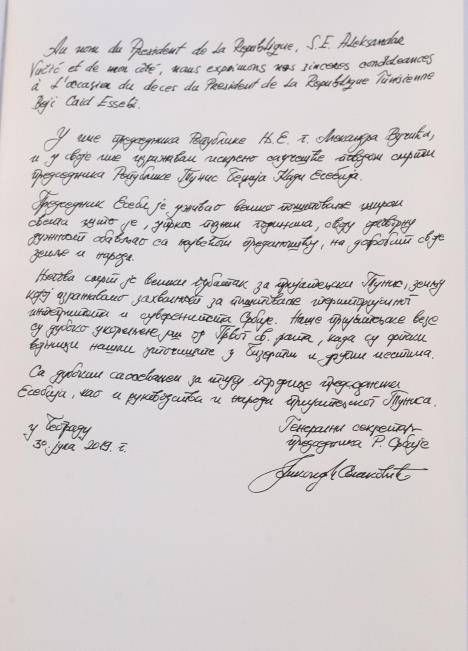 Au nom du President de la Republique, S.E. Aleksandar
Vučić et de mon côté, nous exprimons nos sinceres condoleances
à l'occasion du deces du President de la Republique Tunisienne
Beji Caid Essebi.
У име председника Републике Њ.Е. г. Александра Вучића,
и у своје име изражавам искрено саучешће поводом смрти
председника Републике Тунис Беџија Каида Есебсија.
Председник Есебси је уживао велико поштовање широм
света јер је, упркос годинама, своју државну
дужност обављао са највећом преданошћу, на добробит своје
земље и народа.
Његова смрт је велики губитак за пријатељски Тунис, земљу
којој изражавамо захвалност за поштовање територијалног
интегритета и суверенитета Србије. Наше пријатељске везе
су дубоко укорењене још од Првог св. рата, када су српски
војници нашли уточиште у Бизерти и другим местима.
Са дубоким саосећањем за тугу породице председника
Есебсија, као и руководства и народа пријатељског Туниса.
у Београду
30. јула 2019. г.
Генерални секретар
председника Р. Србије